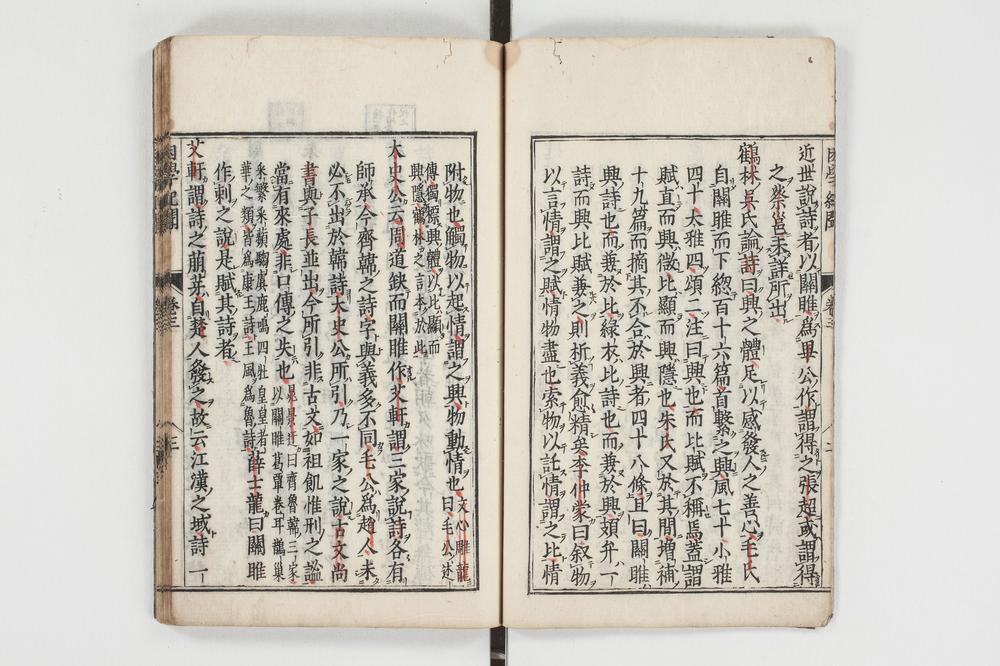 近世說詩者以關雎爲畢公作謂得之張超或謂得
之蔡邕未詳所出
鶴林吳氏論詩曰興之體足以感發人之善心毛氏
自關雎而下總百十六篇首繫之興風七十小雅
四十大雅四頌二注曰興也而比賦不稱焉蓋謂
賦直而興微比顯而興隱也朱氏又於其間增補
十九篇而摘其不合於興者四十八條且曰關雎
興詩也而兼於比綠衣比詩也而兼於興頍弁一
詩而興比賦兼之則析義愈精矣李仲蒙曰叙物
以言情謂之賦情物盡也索物以託情謂之比情
卷三
二
附物也觸物以起情謂之興物動情也文心雕龍
曰毛公述
傳獨標興體以比顯而
興隱鶴林之言本於此
大史公云周道缺而關雎作艾軒謂三家說詩各有
師承今齊韓之詩字與義多不同毛公爲趙人未
必不出於韓詩大史公所引乃一家之說古文尚
書與子長並出今所引非古文如祖飢惟刑之謐
當有來處非口傳之失也晁景迂曰齊魯韓三家
以關雎葛覃卷耳鵲巢
采蘩采蘋騶虞鹿鳴四牡皇皇者
華之類皆爲康王詩王風爲魯詩
薛士龍曰關雎
作刺之說是賦其詩者
艾軒謂詩之萠芽自楚人發之故云江漢之域詩一
困學紀聞
卷三
三